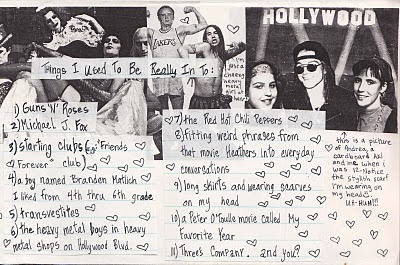 HOLLYWOOD
LAKERS
Things I Used To Be Really In To:
I'm just a
cheesy
heavy
metal
at
1) Guns 'N' Roses
2) Michael J. Fox
3) starting clubs (eg: "Friends
Forever" club)
4) a boy named Branden Matlich
I liked from 4th thru 6th grade
5) transvestites
6) the heavy metal boys in heavy
metal shops on Hollywood Blvd.
7) the Red Hot Chili Peppers
8) fitting weird phrases from
that movie Heathers into everyday
conversations
9) long shirts and wearing scarves
on my head
10) a Peter O'Toole movie called My
Favorite Year
11) Three's Company. and you?
this is a picture
of Andrea, a
cardboard Axl
and me when I
was 12-Notice
the stylish scarf
I'm wearing on
my head.
UH-HUH!!!